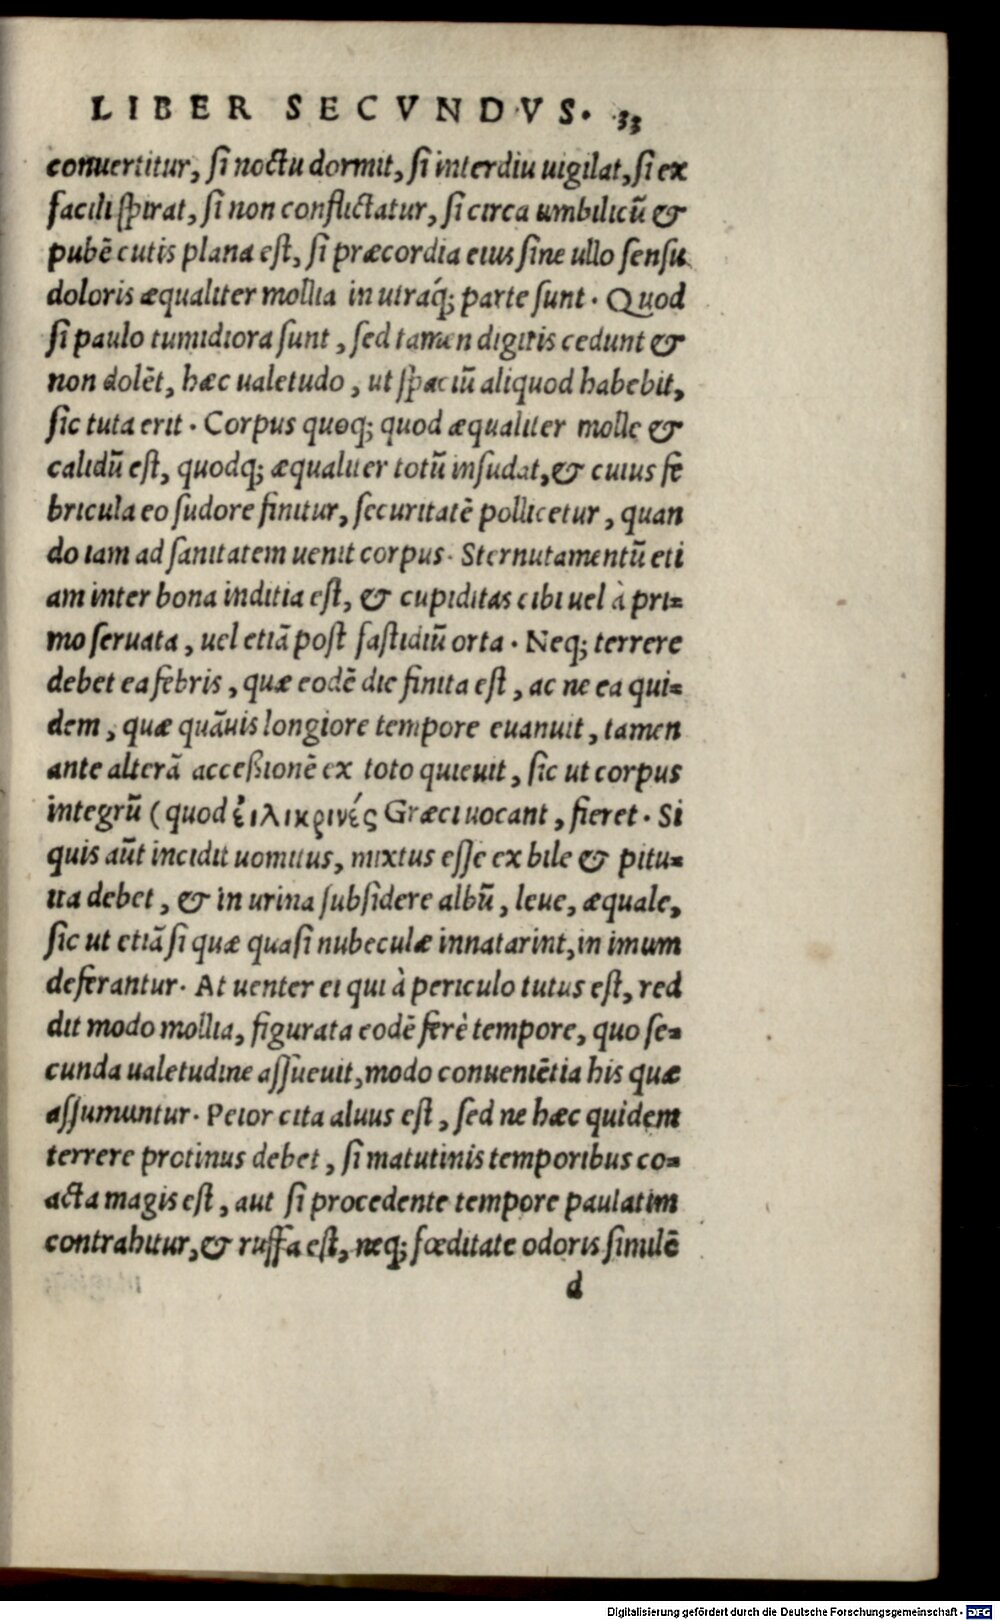 LIBER SECVNDVS. 33
conuertitur, si noctu dormit, si interdiu uigilat, si ex
facili spirat, si non conflictatur, si circa umbilicū &
pubē cutis plana est, si præcordia eius sine ullo sensu
doloris æqualiter mollia in utráq; parte sunt. Quod
si paulo tumidiora sunt, sed tamen digitis cedunt &
non dolēt, hæc ualetudo, ut spaciū aliquod habebit,
sic tuta erit. Corpus quoq; quod æqualiter molle &
calidū est, quodq; æqualiter totū insudat, & cuius fe
bricula eo sudore finitur, securitatē pollicetur, quan
do iam ad sanitatem uenit corpus. Sternutamentū eti
am inter bona inditia est, & cupiditas cibi uel à pri=
mo seruata, uel etiā post fastidiū orta. Neq; terrere
debet ea febris, quæ eodē die finita est, ac ne ea qui=
dem, quæ quāuis longiore tempore euanuit, tamen
ante alterā acceßionē ex toto quieuit, sic ut corpus
integrū (quod ἐιλικρινές Græci uocant, fieret. Si
quis aūt incidit uomitus, mixtus esse ex bile & pitu=
ita debet, & in urina subsidere albū, leue, æquale,
sic ut etiā si quæ quasi nubeculæ innatarint, in imum
deferantur. At uenter ei qui à periculo tutus est, red
dit modo mollia, figurata eodē ferè tempore, quo se=
cunda ualetudine assueuit, modo conueniētia his quæ
assumuntur. Peior cita aluus est, sed ne hæc quidem
terrere protinus debet, si matutinis temporibus co=
acta magis est, aut si procedente tempore paulatim
contrahitur, & ruffa est, neq; fœditate odoris similē
d
Digitalisierung gefördert durch die Deutsche Forschungsgemeinschaft - DFG